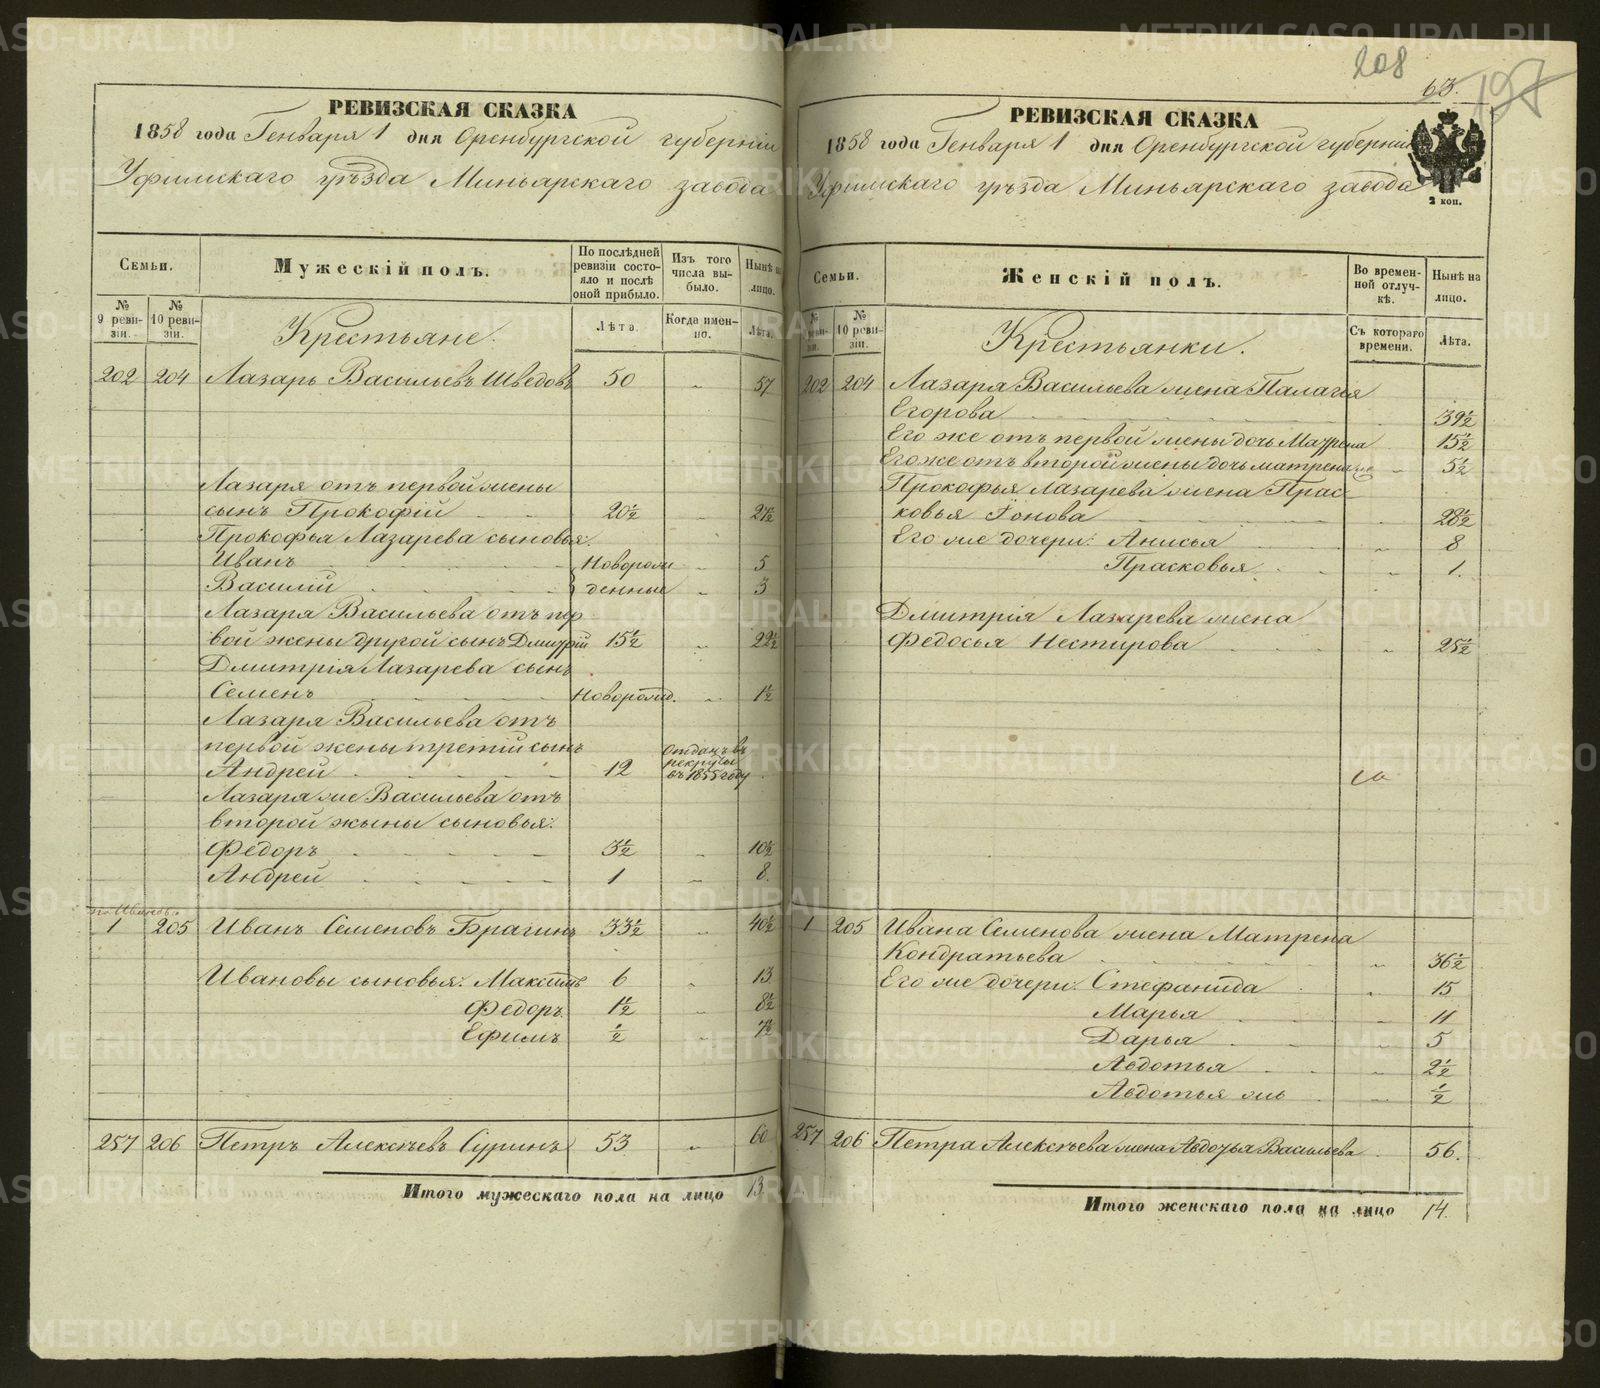 РЕВИЗСКАЯ СКАЗКА
1858 года Генваря 1 дня Оренбургской губернии
Уфимскаго уѣзда Миньярскаго завода
Семьи.
Мужескій полъ.
По послѣдней ревизіи состояло и послѣ оной прибыло.
Изъ того числа выбыло.
Нынѣ на лицо.
№ 9 ревизіи.
№ 10 ревизіи.
Крестьяне.
Лѣта.
Когда именно.
Лѣта.
202 204 Лазарь Васильевъ Шведовъ 50 „ 57
Лазаря отъ первой жены
сынъ Прокофій 20½ „ 27½
Прокофья Лазарева сыновья:
Иванъ Новорож „ 5
Василий денные „ 3
Лазаря Васильева отъ пер
вой жены другой сынъ Дмитрий 15½ „ 22½
Дмитрія Лазарева сынъ
Семенъ Новорожд. „ 1½
Лазаря Васильева отъ
первой жены третій сынъ
Андрей 12 отданъ въ рекруты въ 1855 году
Лазаря же Васильева отъ
второй жыны сыновья:
Федоръ 3½ „ 10½
Андрей 1 „ 8.
1 205 Иванъ Семеновъ Брагинъ 33½ „ 40½
Ивановы сыновья: Максимъ 6 „ 13
Федоръ 1½ „ 8½
Ефимъ ½ „ 7½
257 206 Петръ Алексѣевъ Суринъ 53 „ 60
Итого мужескаго пола на лицо 13.
208
63.
197
РЕВИЗСКАЯ СКАЗКА
1858 года Генваря 1 дня Оренбургской губерніи
Уфимскаго уѣзда Миньярскаго завода
2 коп.
Семьи.
Женскій полъ.
Во временной отлучкѣ.
Нынѣ на лицо.
№ 9 ревизіи.
№ 10 ревизіи.
Крестьянки.
Съ котораго времени.
Лѣта.
202 204 Лазаря Васильева жена Палагея
Егорова 39½
Его же отъ первой жены дочь Мавра 15½
Егоже отъ второй жены дочь матрена „ 5½
Прокофья Лазарева жена Прас
ковья Іонова 28½
Его же дочери: Анисья „ 8
Прасковья „ 1.
Дмитрія Лазарева жена
Федосья Нестирова „ 25½
1 205 Ивана Семенова жена Матрена
Кондратьева „ 36½
Его же дочери: Стефанида „ 15
Марья „ 11
Дарья „ 5
Авдотья „ 2½
Авдотья жъ „ ½
257 206 Петра Алексѣева жена Авдотья Васильева 56.
Итого женскаго пола на лицо 14.
METRIKI.GASO-URAL.RU